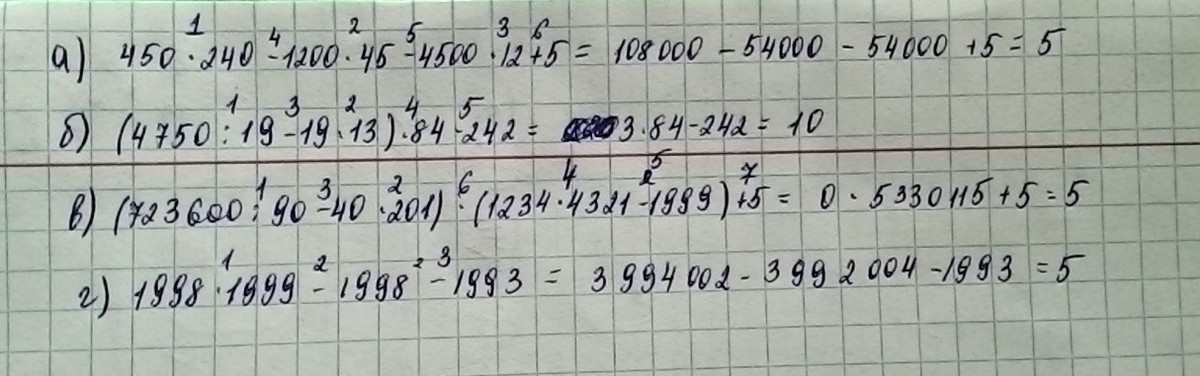 а) 450 · 240 - 1200 · 45 - 4500 · 12 + 5 = 108000 - 54000 - 54000 + 5 = 5
б) (4750 : 19 - 19 · 13) · 84 - 242 = 3 · 84 - 242 = 10
в) (723600 : 90 - 40 · 201) · (1234 · 4321 - 1999) + 5 = 0 · 5330115 + 5 = 5
г) 1998 · 1999 - 1998² - 1993 = 3994002 - 3992004 - 1993 = 5